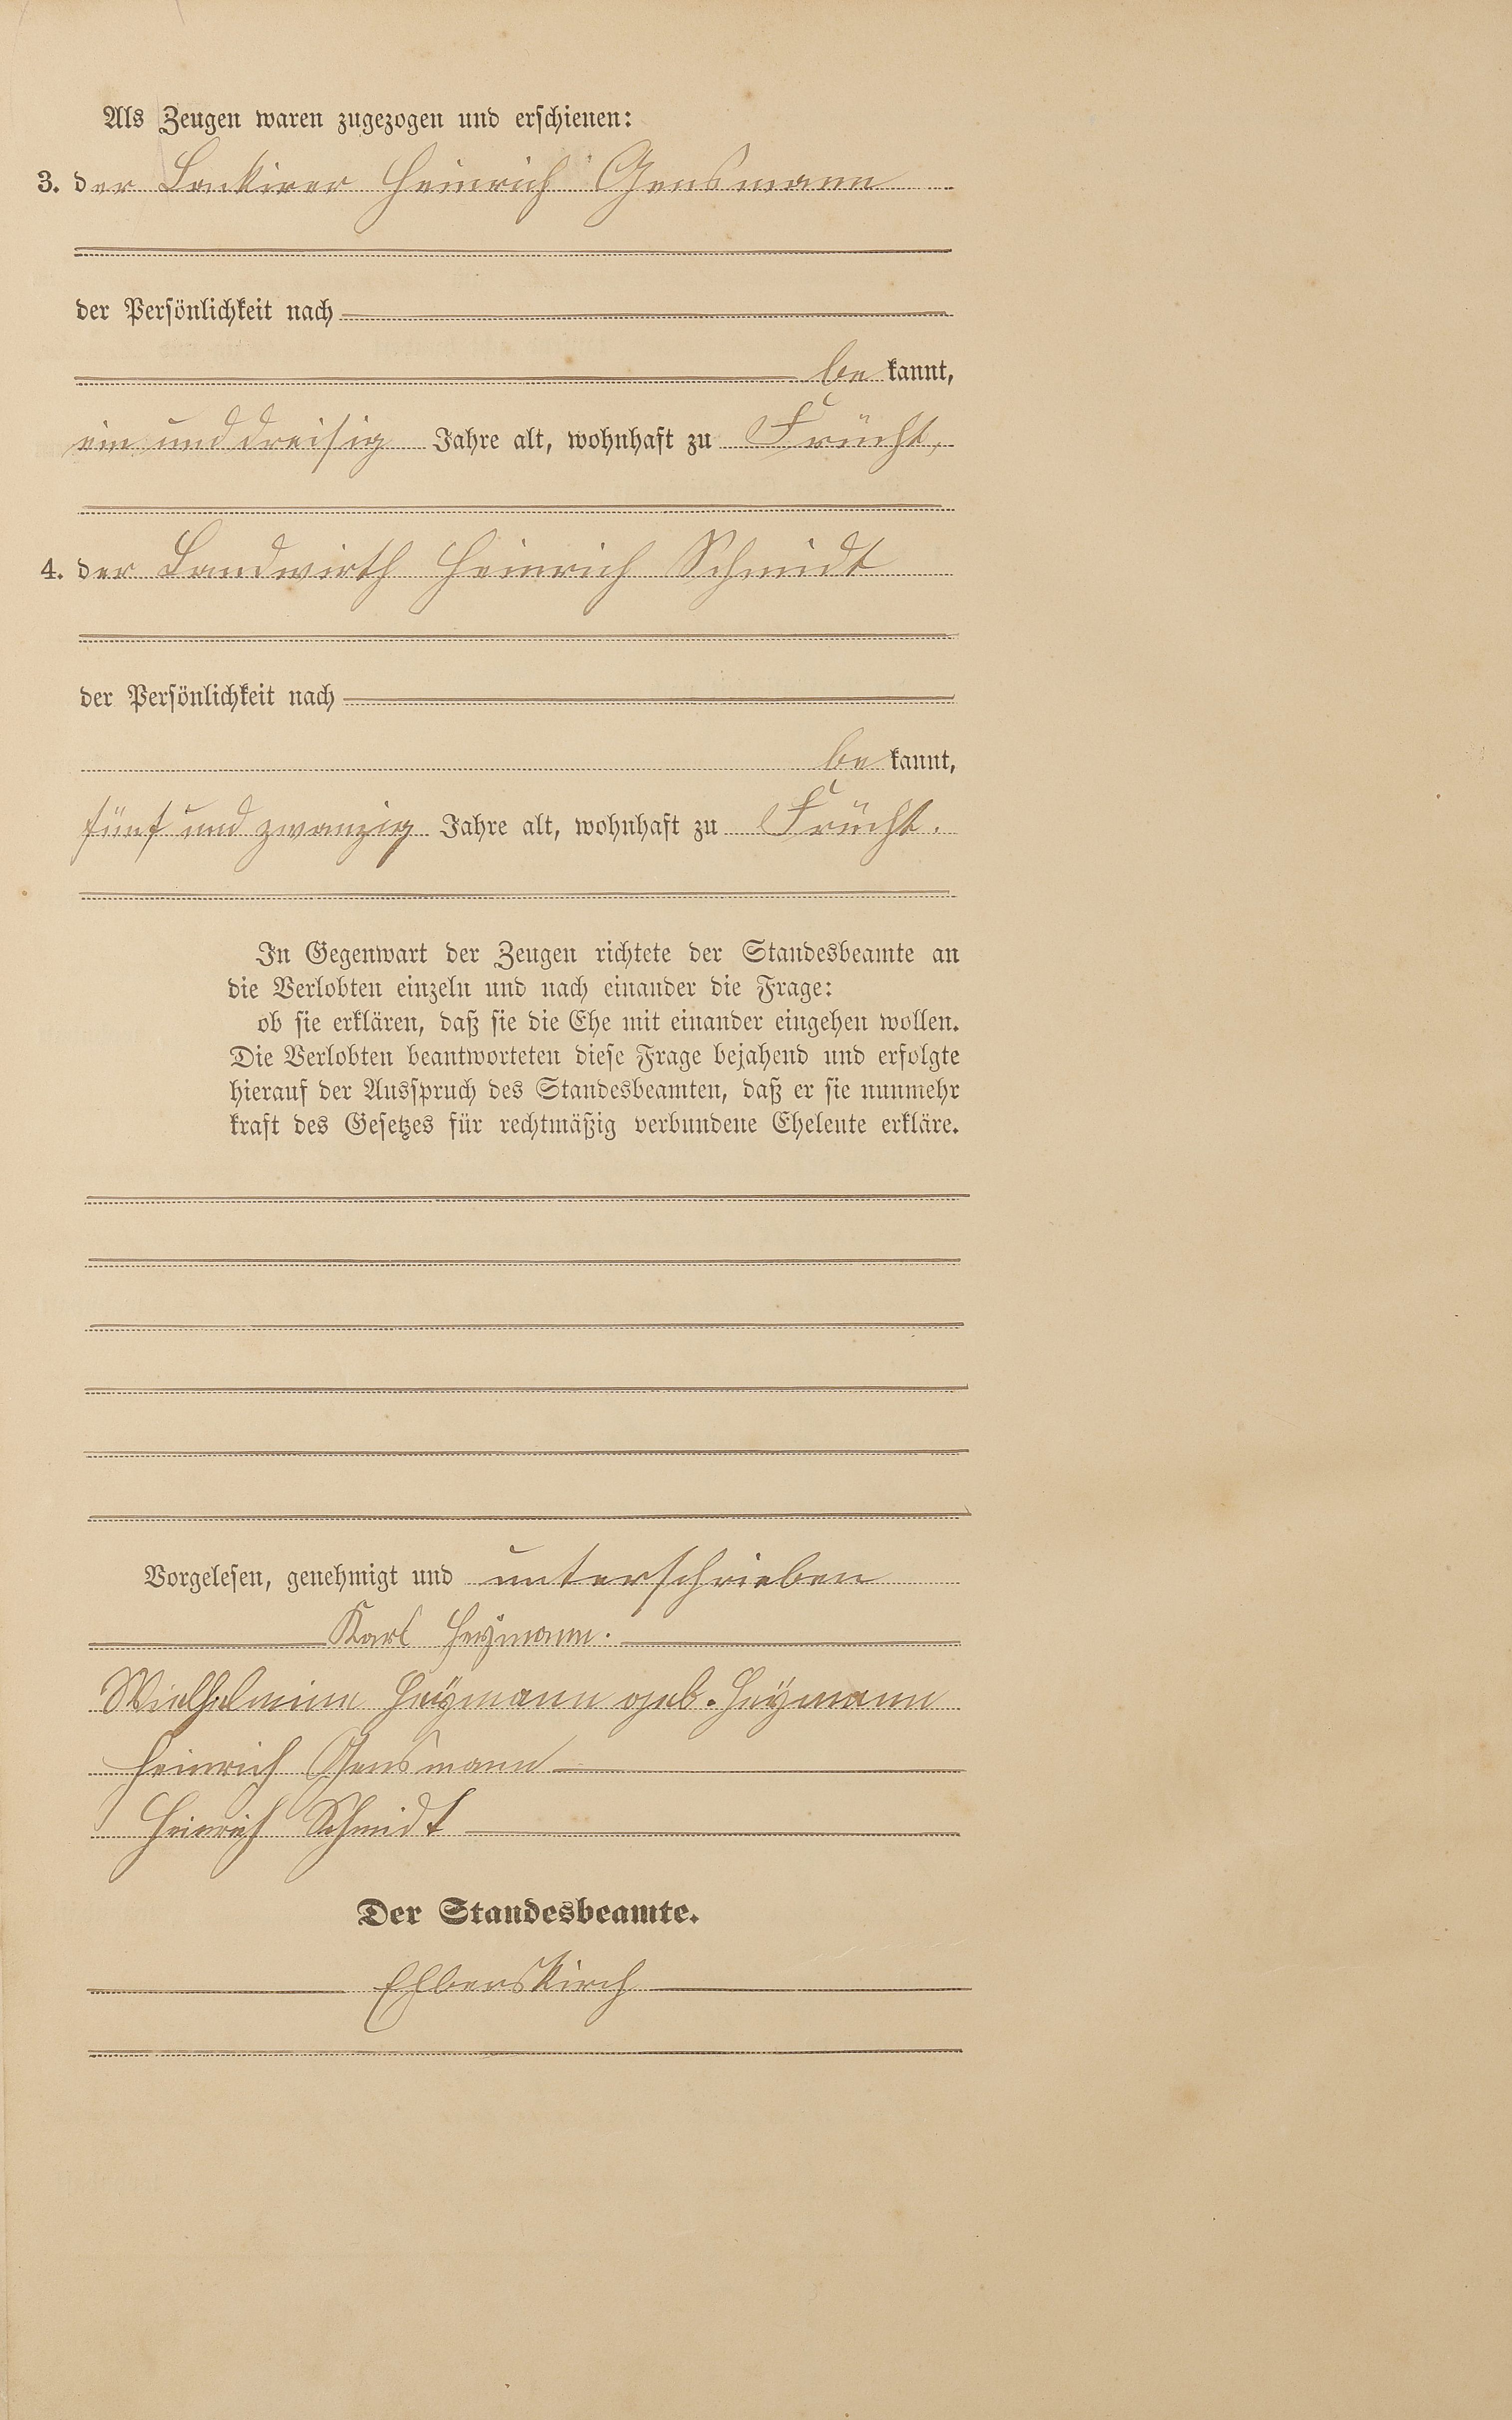 Als Zeugen waren zugezogen und erschienen:
3. der Lackirer Heinrich Gensmann
der Persönlichkeit nach
be kannt,
ein und dreisig Jahre alt, wohnhaft zu Frücht,
4. der Landwirth Heinrich Schmidt
der Persönlichkeit nach
be kannt,
fünf und zwanzig Jahre alt, wohnhaft zu Frücht.
In Gegenwart der Zeugen richtete der Standesbeamte an
die Verlobten einzeln und nach einander die Frage:
ob sie erklären, daß sie die Ehe mit einander eingehen wollen.
Die Verlobten beantworteten diese Frage bejahend und erfolgte
hierauf der Ausspruch des Standesbeamten, daß er sie nunmehr
kraft des Gesetzes für rechtmäßig verbundene Eheleute erkläre.
Vorgelesen, genehmigt und unterschrieben
Karl Heymann.
Wielhelmine Heÿmann geb. Heÿmann
Heinrich Gensmann
Heinrich Schmidt
Der Standesbeamte.
Elberskirch